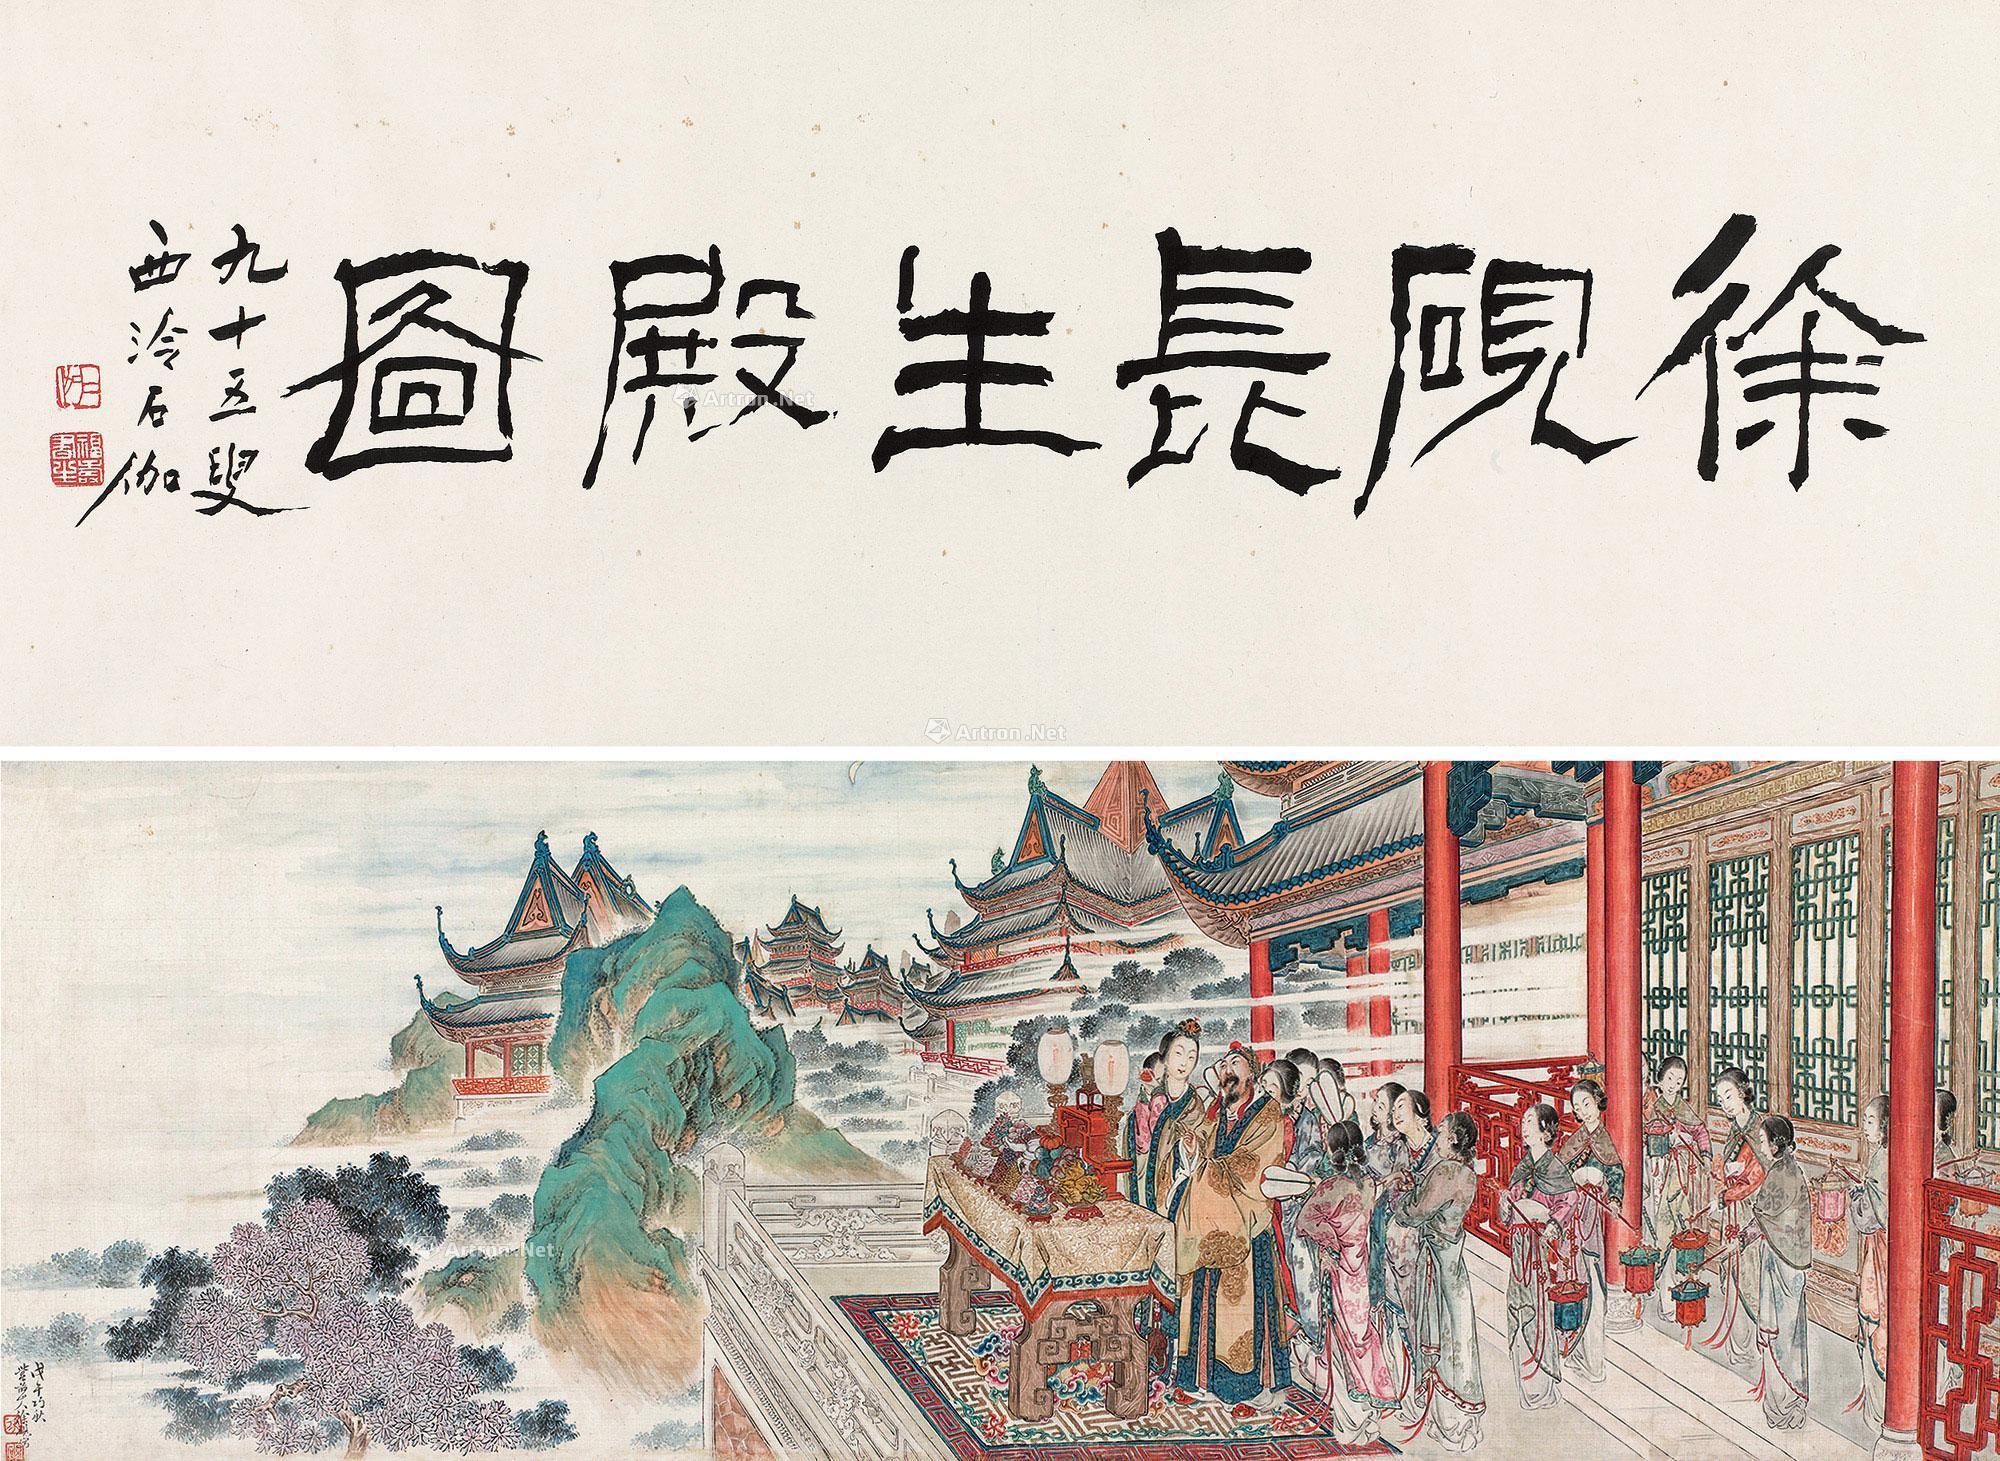 徐硯長生殿圖
九十五叟
西泠石伽
Artron.Net
Artron.Net
Artron.Net
戊午巧秋